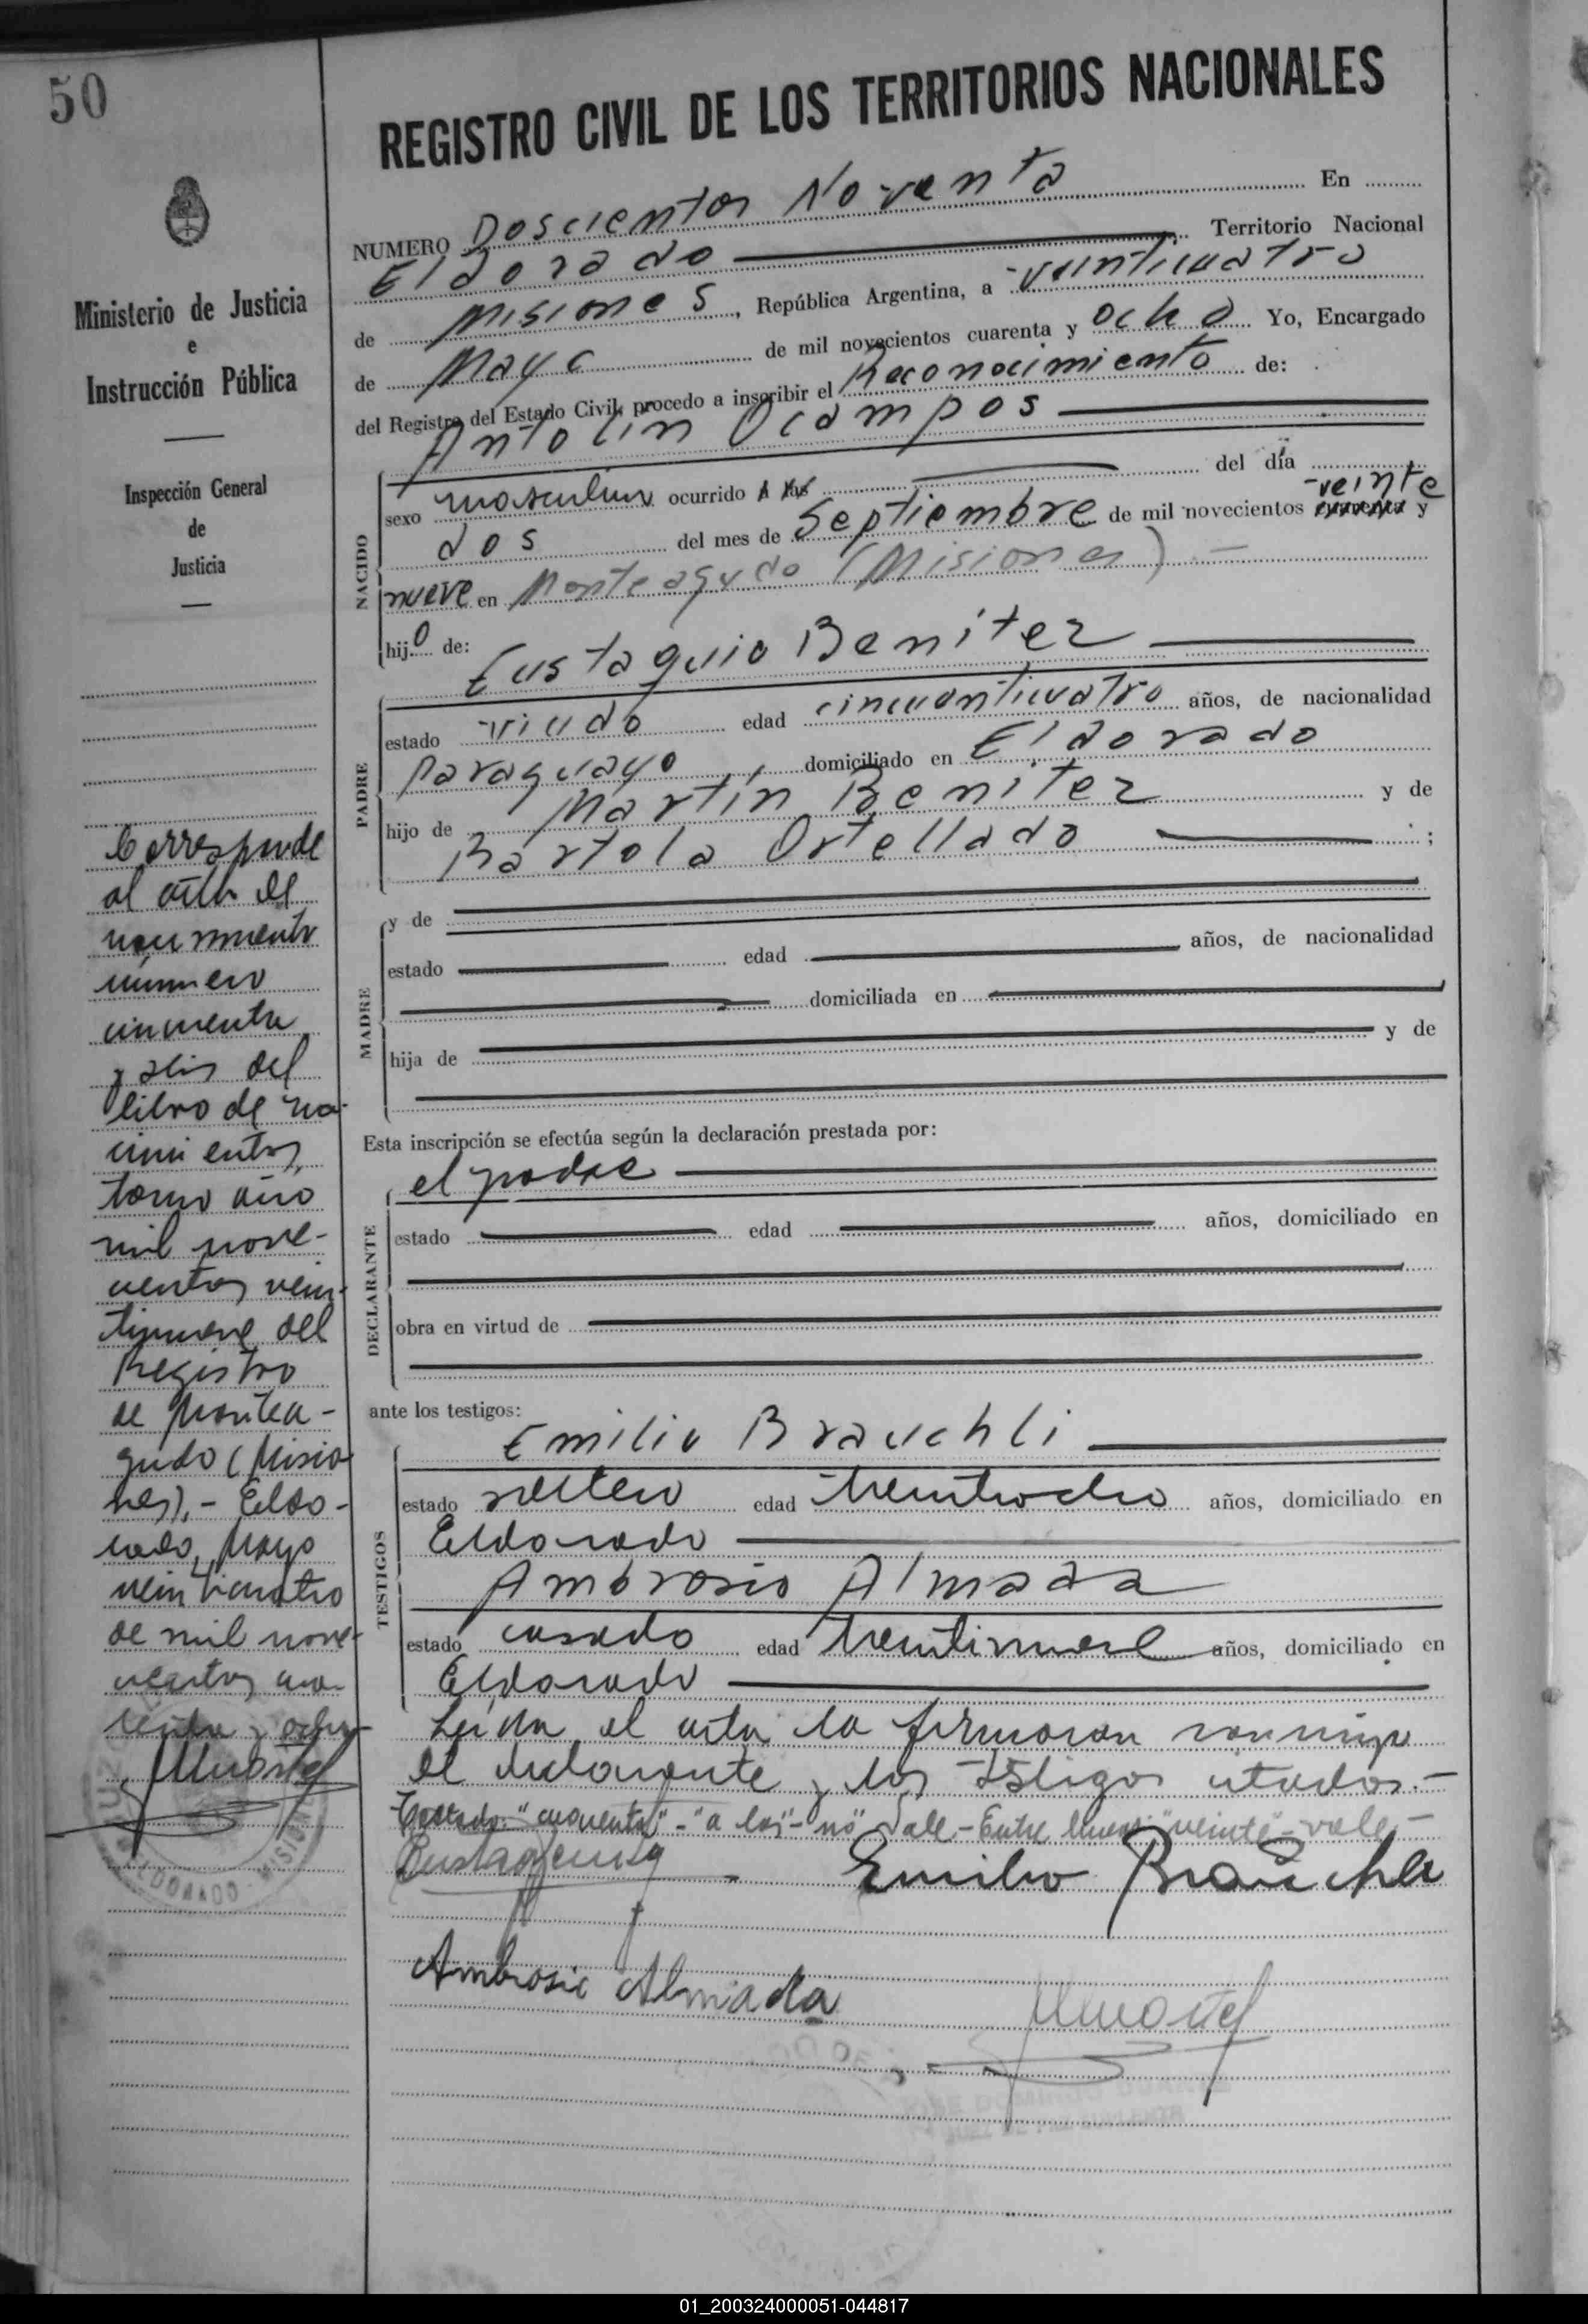 50
REGISTRO CIVIL DE LOS TERRITORIOS NACIONALES
NUMERO Doscientos Noventa En
Eldorado Territorio Nacional
de Misiones, República Argentina, a veinticuatro
de Mayo de mil novecientos cuarenta y ocho Yo, Encargado
del Registro del Estado Civil, procedo a inscribir el Reconocimiento de:
Antolin Ocampos
NACIDO
sexo masculino ocurrido a las del día
veinte
dos del mes de Septiembre de mil novecientos cuarenta y
nueve en Monteagudo (Misiones)
hijo de: Eustaquio Benitez
PADRE
estado viudo edad cincuenticuatro años, de nacionalidad
paraguayo domiciliado en Eldorado
hijo de Martín Benítez y de
Bartola Ortellado ;
MADRE
y de
estado edad años, de nacionalidad
domiciliada en
hija de y de
Esta inscripción se efectúa según la declaración prestada por:
el padre
DECLARANTE
estado edad años, domiciliado en
obra en virtud de
ante los testigos:
TESTIGOS
Emilio Brauchli
estado soltero edad treintiocho años, domiciliado en
Eldorado
Ambrosio Almada
estado casado edad treintinueve años, domiciliado en
Eldorado
Leída el acta la firmaron conmigo
el declarante y los testigos citados.-
Testado: "cuarenta" - "a las" - no vale - Entre lineas "veinte" - vale -
Emilio Brauchli
Ambrosio Almada
Ministerio de Justicia
e
Instrucción Pública
Inspección General
de
Justicia
Corresponde
al acta de
nacimiento
número
cincuenta
y seis del
libro de na-
cimientos,
tomo año
mil nove-
cientos vein-
tinueve del
Registro
de Montea-
gudo (Misio
nes).- Eldo-
rado, Mayo
veinticuatro
de mil nove-
cientos cua-
renta y ocho
01_200324000051-044817